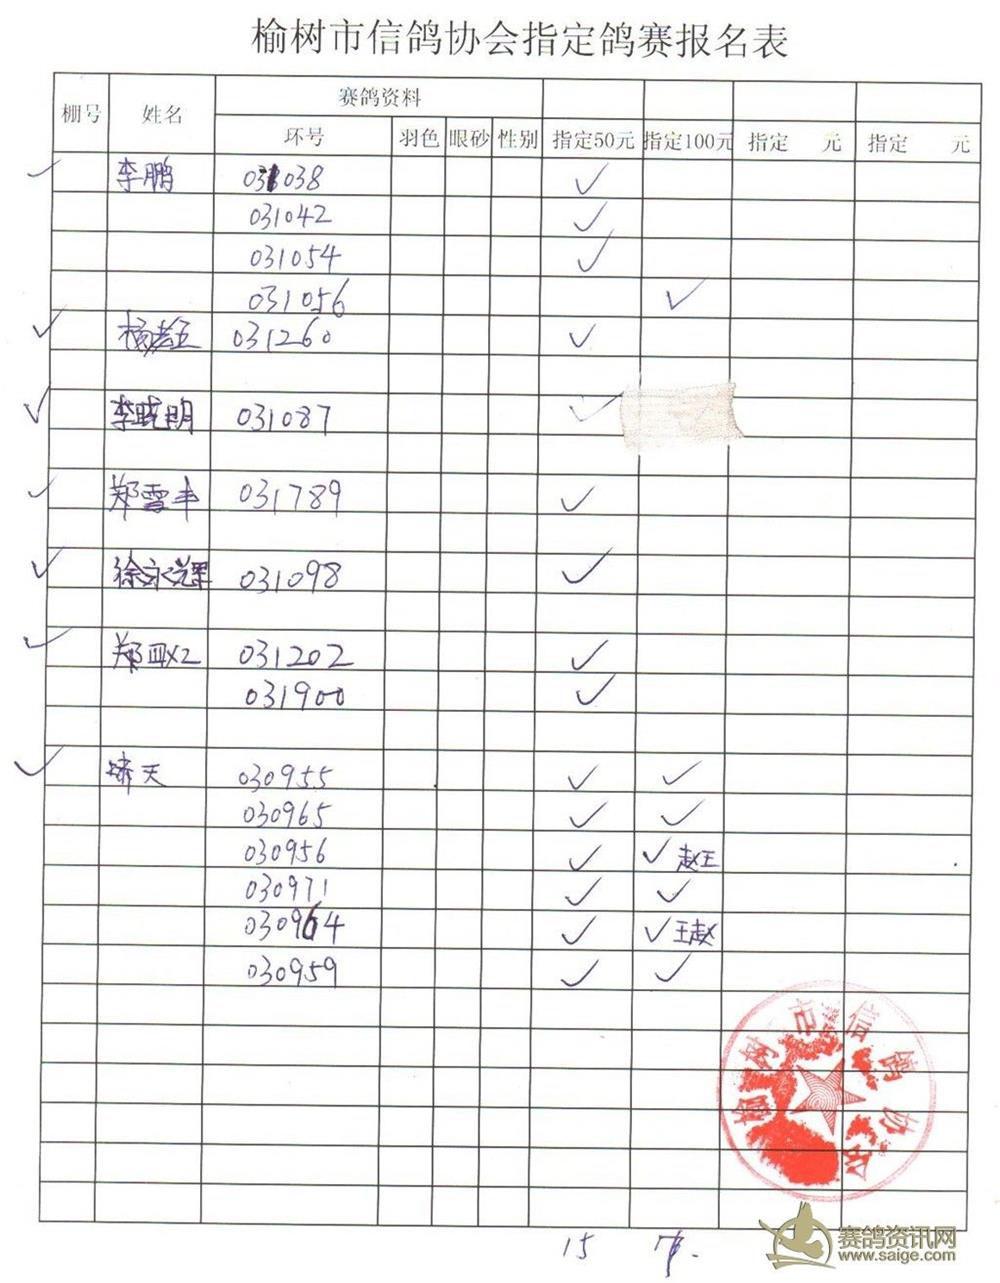 榆树市信鸽协会指定鸽赛报名表
棚号 姓名 赛鸽资料
环号 羽色 眼砂 性别 指定50元 指定100元 指定 元 指定 元
✓ 李鹏 031038 ✓
031042 ✓
031054 ✓
031056 ✓
✓ 杨 031260 ✓
✓ 李晓明 031087 ✓
✓ 郑雪丰 031789 ✓
✓ 徐永辉 031098 ✓
✓ 郑 031202 ✓
031900 ✓
✓ 天 030955 ✓ ✓
030965 ✓ ✓
030956 ✓ ✓ 赵王
030971 ✓ ✓
030964 ✓ ✓ 王赵
030959 ✓ ✓
榆树市信鸽协会
15 7.
赛鸽资讯网
www.saige.com